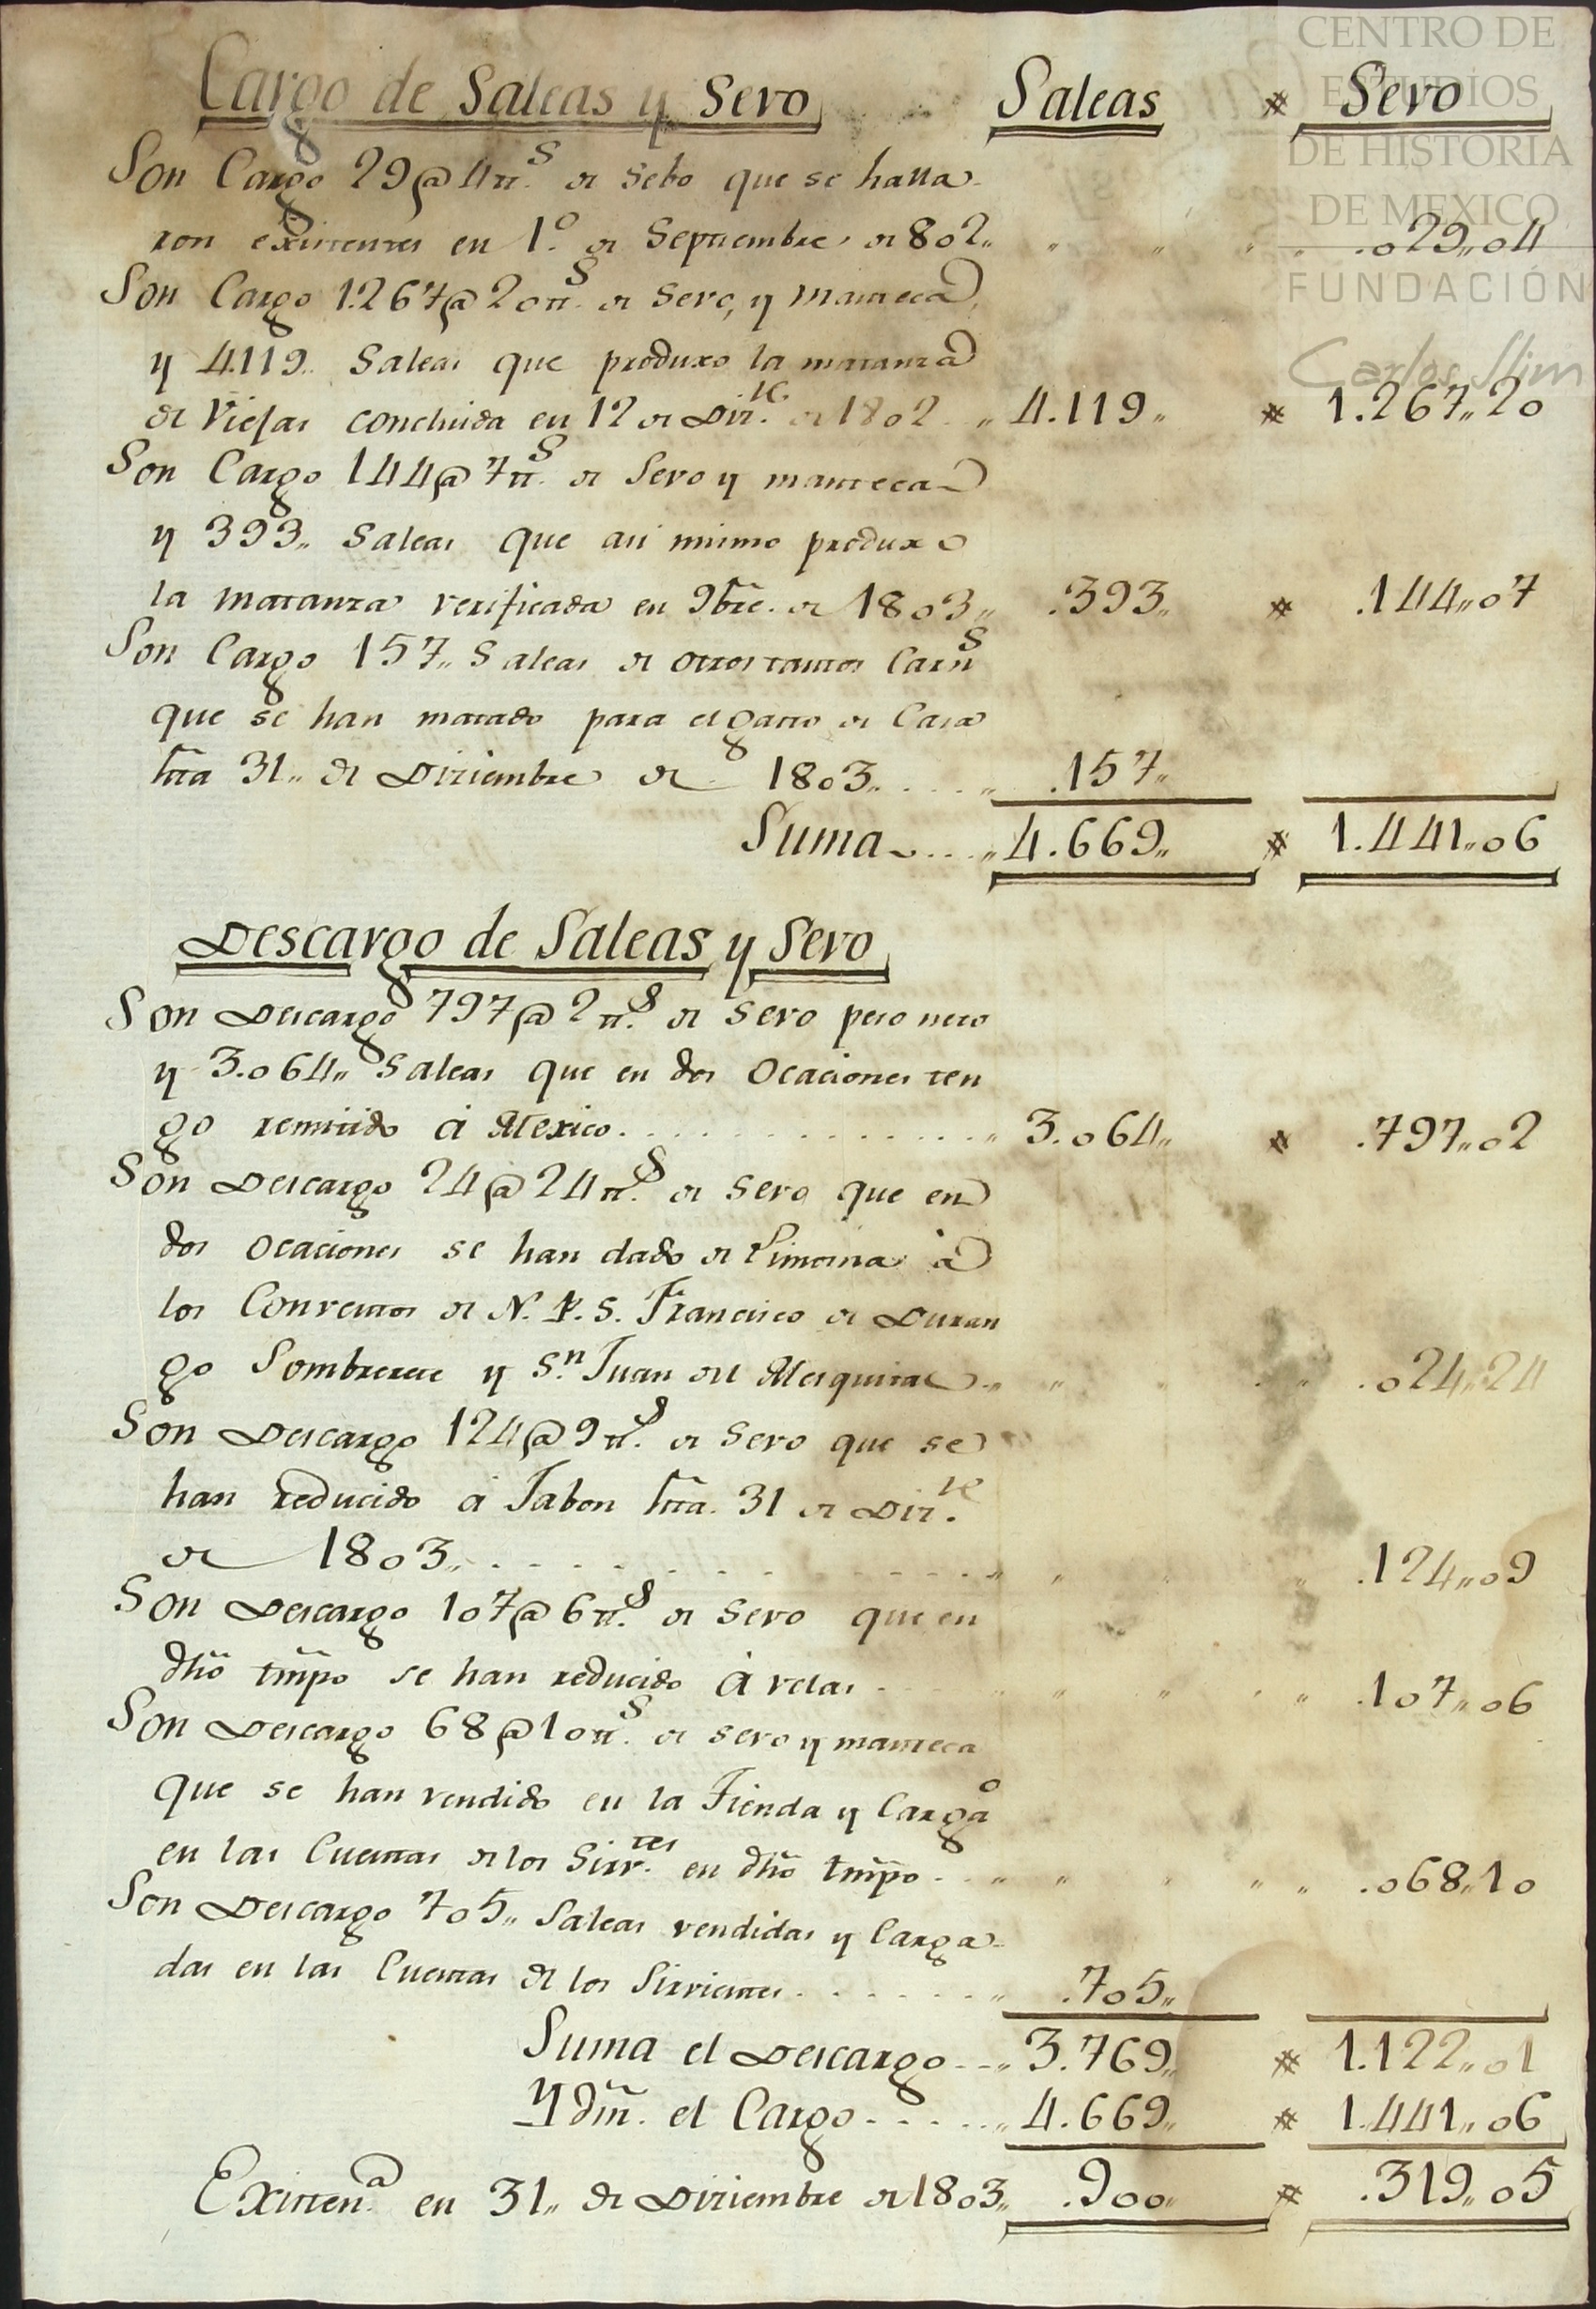 CENTRO DE
ESTUDIOS
DE HISTORIA
DE MEXICO
FUNDACIÓN
Carlos Slim
Cargo de Saleas y Sevo Saleas # Sevo
Son Cargo 29@4tt.s de Sebo que se halla-
ron existentes en 1.o de Septiembre de 802,, .029,,04
Son Cargo 1.267@20tt.s de Sevo, y Manteca,
y 4.119,, Saleas que produxo la matanza
de Viejas concluida en 12 de Diz.re de 1802. ,, 4.119,, # 1.267,,20
Son Cargo 144@7tt.s de Sevo y manteca
y 393,, Saleas que asi mismo produxo
la matanza verificada en 9bre. de 1803,, .393,, # .144,,07
Son Cargo 157,, Saleas de otros tantos Carns
que se han matado para el gasto de Casa
hta 31,, de Diziembre de 1803,,....,, .157,,
Suma....,, 4.669,, # 1.441,,06
Descargo de Saleas y Sevo
Son Descargo 797@2tt.s de Sevo peso neto
y 3.064,, Saleas que en dos Ocaciones ten
go remitido á Mexico..............,, 3.064,, # .797,,02
Son Descargo 24@24tt.s de Sevo que en
dos Ocaciones se han dado de Limosna à
los Conventos de N. P. S. Francisco de Duran
go Sombrerete y S.n Juan del Mesquital.,, .024,,24
Son Descargo 124@9tt.s de Sevo que se
han reducido á Jabon hta. 31 de Diz.re
de 1803,,..............,, .124,,09
Son Descargo 107@6tt.s de Sevo que en
dho tmpo se han reducido á velas.... .107,,06
Son Descargo 68@10tt.s de sevo y manteca
que se han vendido en la Tienda y Cargao
en las Cuentas de los Sirv.tes en dho tmpo..,, .068,,10
Son Descargo 705,, Saleas vendidas y Carga-
das en las Cuentas de los Sirvientes.......,, .705,,
Suma el Descargo..,, 3.769,, # 1.122,,01
Ydm. el Cargo.....,, 4.669,, # 1.441,,06
Existen.a en 31,, de Diziembre de 1803,, .900,, # .319,,05